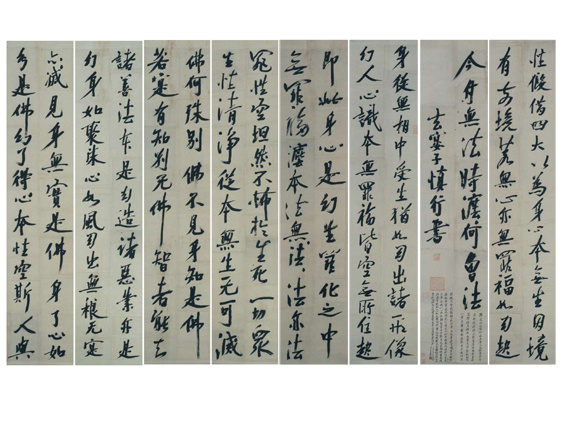 性假借四大以為身心本無生因境
有前境若無心亦無罪福如幻起
今付無法時法法何曾法
慎行書
身從無相中受生猶如幻出諸形像
幻人心識本無罪福皆空無所住起
即此身心是幻生幻化之中
無罪福法本法無法無法法亦法
罪性空坦然不怖於生死一切眾
生性清淨從本無生無可滅
佛何殊別佛不見身知是佛
若實有知別无佛智者能知
諸善法本是幻造諸惡業亦是
幻身如聚沫心如風幻出無根无實
亦滅見身無實是佛身了心如
幻是佛幻了得心本性空斯人與